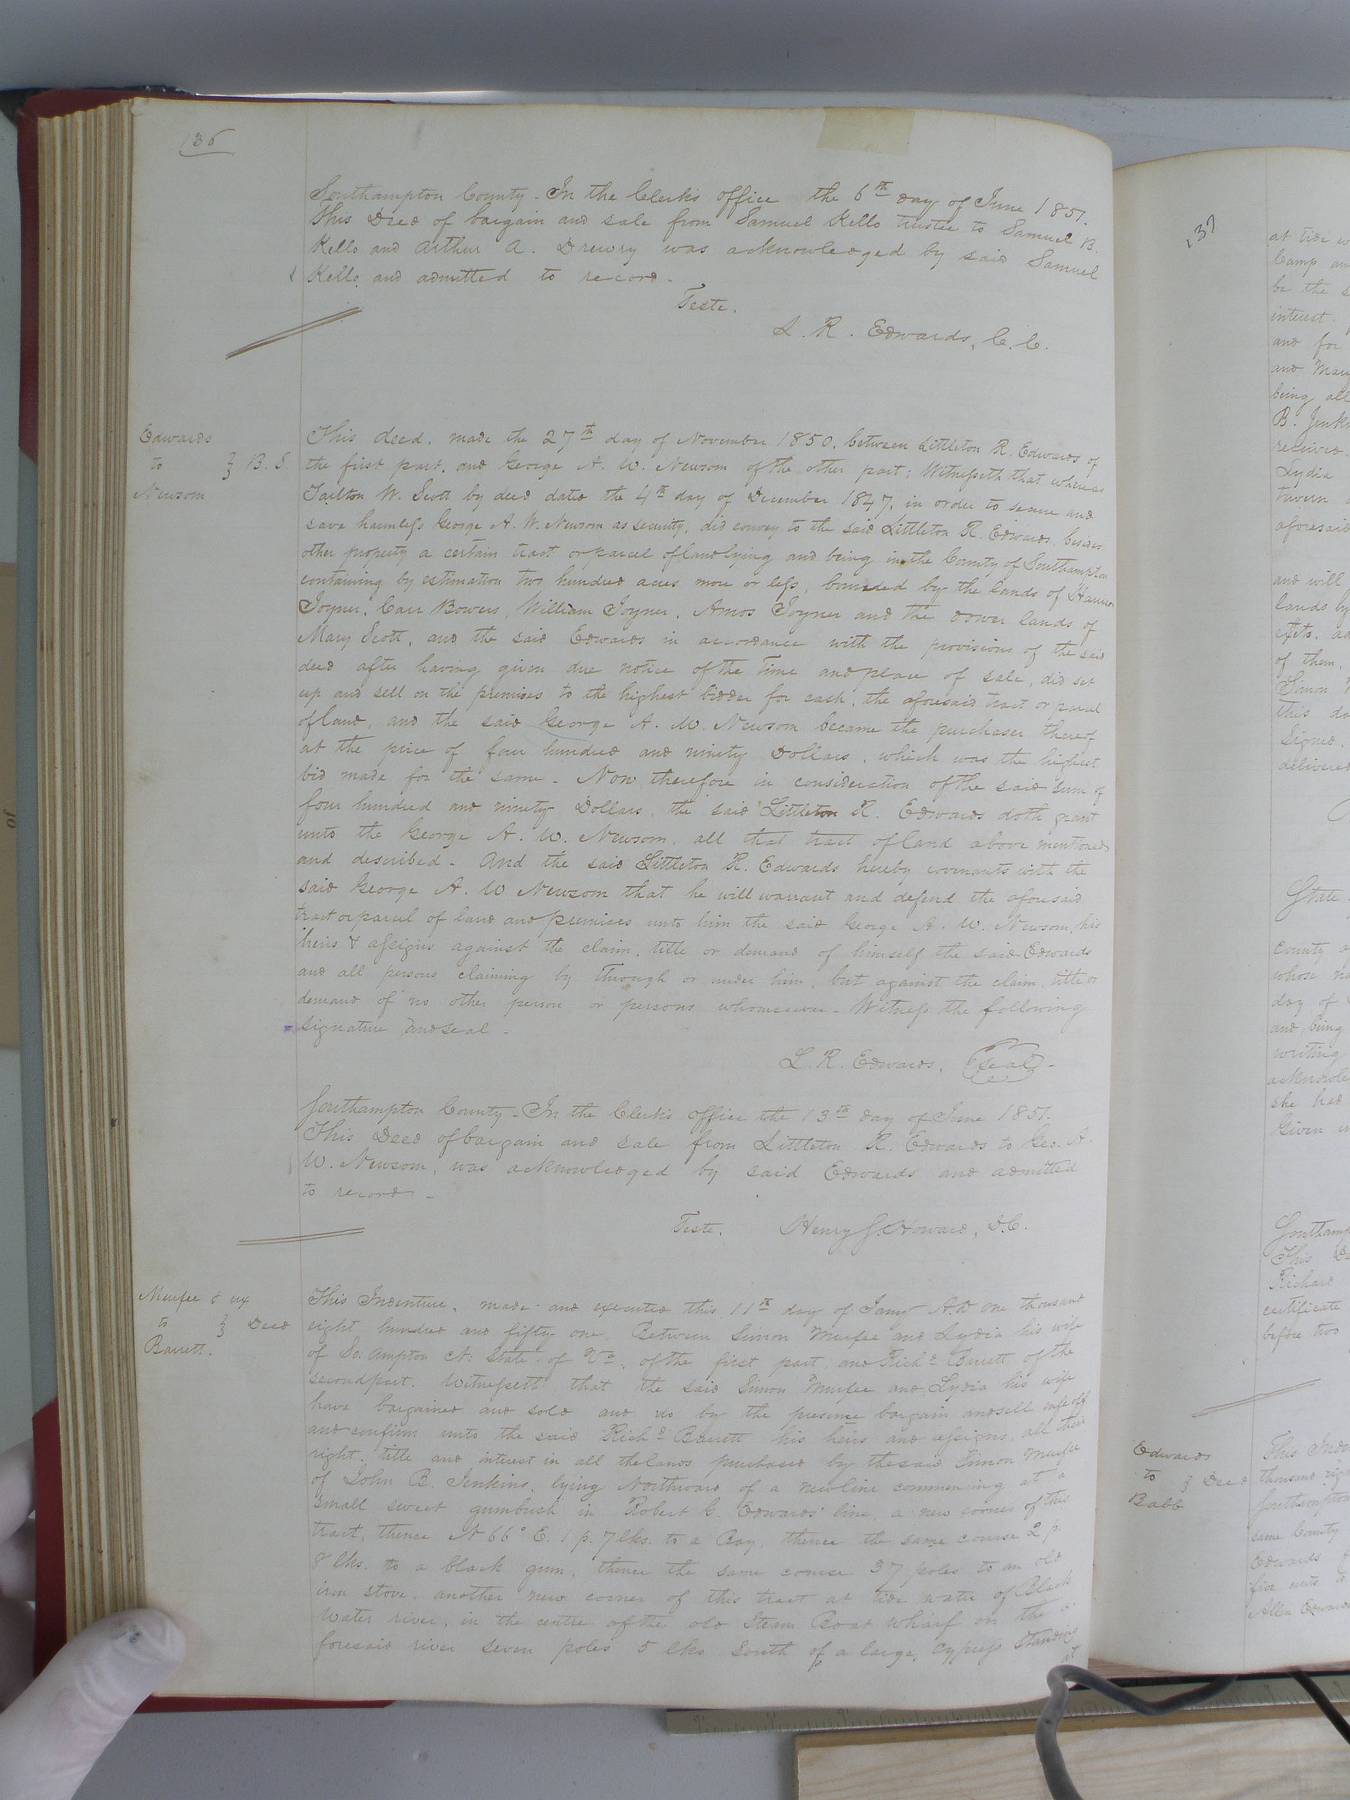 136
Southampton County - In the Clerk's office the 6th day of June 1851.
This Deed of bargain and sale from Samuel Kello trustee to Samuel B.
Kello and Arthur A. Drewry was acknowledged by said Samuel
Kello and admitted to record -
Teste.
L. R. Edwards, C. C.
Edwards
to } B. S.
Newsom
This deed, made the 27th day of November 1850, between Littleton R. Edwards of
the first part, and George A. W. Newsom of the other part; Witnesseth that whereas
Tarlton W. Scott by deed dated the 4th day of December 1847, in order to secure and
save harmless George A. W. Newsom as security, did convey to the said Littleton R. Edwards, besides
other property a certain tract or parcel of land lying and being in the County of Southampton
containing by estimation two hundred acres more or less, bounded by the lands of
Joyner, Carr Bowers, William Joyner, Amos Joyner and the dower lands of
Mary Scott, and the said Edwards in accordance with the provisions of the said
deed after having given due notice of the time and place of sale, did set
up and sell on the premises to the highest bidder for cash, the aforesaid tract or parcel
of land, and the said George A. W. Newsom became the purchaser thereof
at the price of four hundred and ninety Dollars, which was the highest
bid made for the same - Now therefore in consideration of the said sum of
four hundred and ninety Dollars, the said Littleton R. Edwards doth grant
unto the George A. W. Newsom, all that tract of land above mentioned
and described - And the said Littleton R. Edwards hereby covenants with the
said George A. W Newsom that he will warrant and defend the aforesaid
tract or parcel of land and premises unto him the said George A. W. Newsom, his
heirs & assigns against the claim, title or demand of himself the said Edwards
and all persons claiming by through or under him, but against the claim, title or
demand of no other person or persons whomsoever - Witness the following
signature and seal -
L. R. Edwards, (seal) -
Southampton County - In the Clerk's office the 13th day of June 1851.
This Deed of bargain and sale from Littleton R. Edwards to Geo. A.
W. Newsom, was acknowledged by said Edwards and admitted
to record -
Teste. Henry J. Howard, D. C.
Murfee & ux
to } Deed
Barrett.
This Indenture, made and executed this 11th day of Jany A.D one thousand
eight hundred and fifty one, Between Simon Murfee and Lydia his wife
of So. ampton State of Va, of the first part, and Richd Barrett of the
second part. Witnesseth that the said Simon Murfee and Lydia his wife
have bargained and sold and do by the presence bargain and sell
and confirm unto the said Richd Barrett his heirs and assigns, all their
right, title and interest in all the lands purchased by the said Simon Murfee
of John B. Jenkins, lying Northward of a new line commencing at a
small sweet gum bush in Robert G. Edwards' line, a new corner of this
tract, thence N 66° E. 1 p. 7 lks. to a Bay, thence the same course 2 p.
8 lks. to a black gum, thence the same course 37 poles to an old
iron stove, another new corner of this tract at tide water of Black
water river, in the centre of the old Steam Boat wharf on the a-
foresaid river seven poles 5 lks South of a large, cypress standing
at
137
at tide
Camp
be the
interest
and for
and
being all
B.
received
Lydia
tavern
aforesaid
and will
lands by
of them,
this
Signed,
delivered
State
County
whose
day of
and being
writing
she had
Given
This
Richard
certificate
before two
Edwards
to } Deed
Babb
This
thousand
Southampton
same County
Edwards
five
Allen Edwards